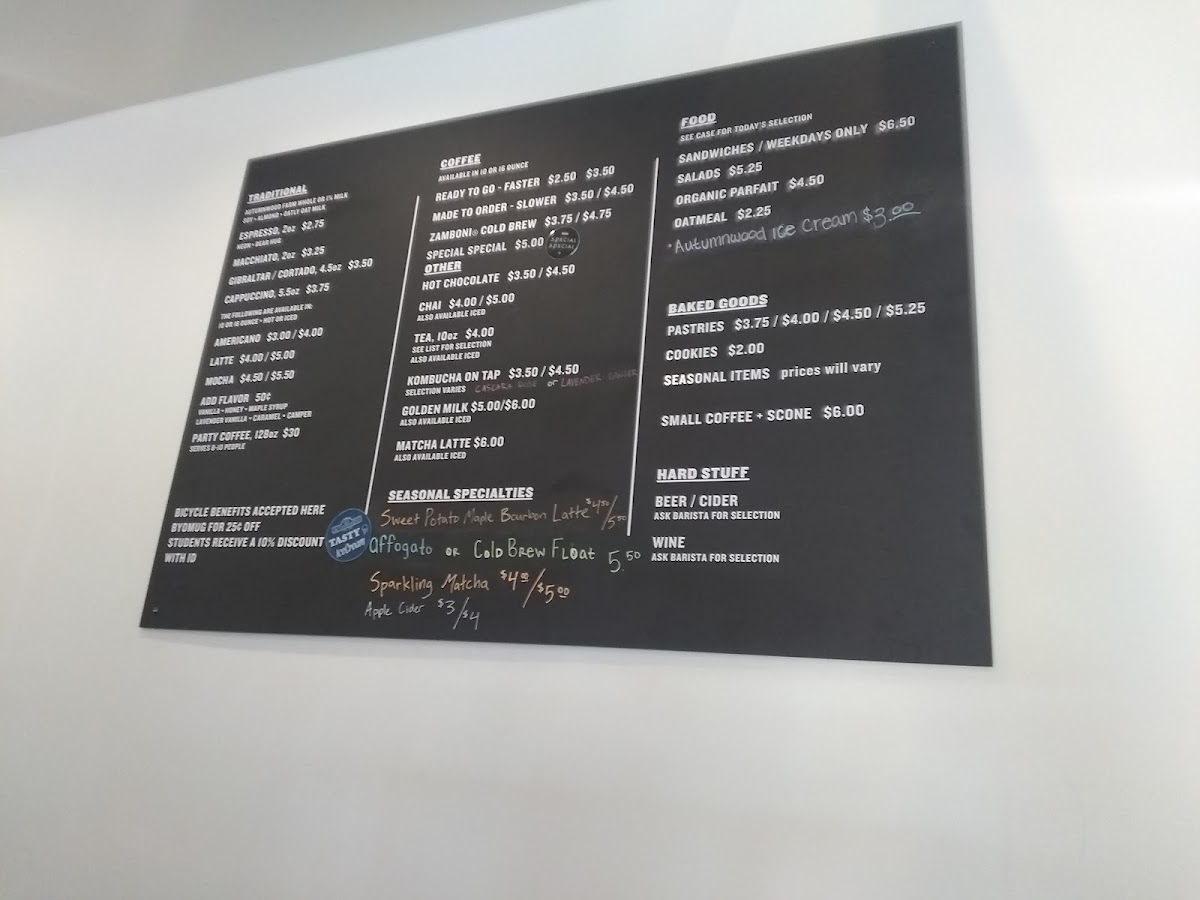 TRADITIONAL
AUTUMNWOOD FARM WHOLE OR 1% MILK
SOY - ALMOND - OATLY OAT MILK
ESPRESSO, 2oz $2.75
NEON - DEAR HUG
MACCHIATO, 2oz $3.25
GIBRALTAR / CORTADO, 4.5oz $3.50
CAPPUCCINO, 5.5oz $3.75
THE FOLLOWING ARE AVAILABLE IN:
10 OR 16 OUNCE - HOT OR ICED
AMERICANO $3.00 / $4.00
LATTE $4.00 / $5.00
MOCHA $4.50 / $5.50
ADD FLAVOR 50¢
VANILLA - HONEY - MAPLE SYRUP
LAVENDER VANILLA - CARAMEL - CAMPER
PARTY COFFEE, 128oz $30
SERVES 8-10 PEOPLE
BICYCLE BENEFITS ACCEPTED HERE
BYOMUG FOR 25¢ OFF
STUDENTS RECEIVE A 10% DISCOUNT
WITH ID
COFFEE
AVAILABLE IN 10 OR 16 OUNCE
READY TO GO - FASTER $2.50 $3.50
MADE TO ORDER - SLOWER $3.50 / $4.50
ZAMBONI® COLD BREW $3.75 / $4.75
SPECIAL SPECIAL $5.00
SPECIAL
SPECIAL
OTHER
HOT CHOCOLATE $3.50 / $4.50
CHAI $4.00 / $5.00
ALSO AVAILABLE ICED
TEA, 10oz $4.00
SEE LIST FOR SELECTION
ALSO AVAILABLE ICED
KOMBUCHA ON TAP $3.50 / $4.50
SELECTION VARIES CASCARA ROSE or LAVENDER GINGER
GOLDEN MILK $5.00/$6.00
ALSO AVAILABLE ICED
MATCHA LATTE $6.00
ALSO AVAILABLE ICED
SEASONAL SPECIALTIES
Sweet Potato Maple Bourbon Latte $4.50/5.50
TASTY
Ice Cream
affogato OR Cold Brew Float 5.50
Sparkling Matcha $4.00/$5.00
Apple Cider $3/$4
FOOD
SEE CASE FOR TODAY'S SELECTION
SANDWICHES / WEEKDAYS ONLY $6.50
SALADS $5.25
ORGANIC PARFAIT $4.50
OATMEAL $2.25
• Autumnwood ice Cream $3.00
BAKED GOODS
PASTRIES $3.75 / $4.00 / $4.50 / $5.25
COOKIES $2.00
SEASONAL ITEMS prices will vary
SMALL COFFEE + SCONE $6.00
HARD STUFF
BEER / CIDER
ASK BARISTA FOR SELECTION
WINE
ASK BARISTA FOR SELECTION